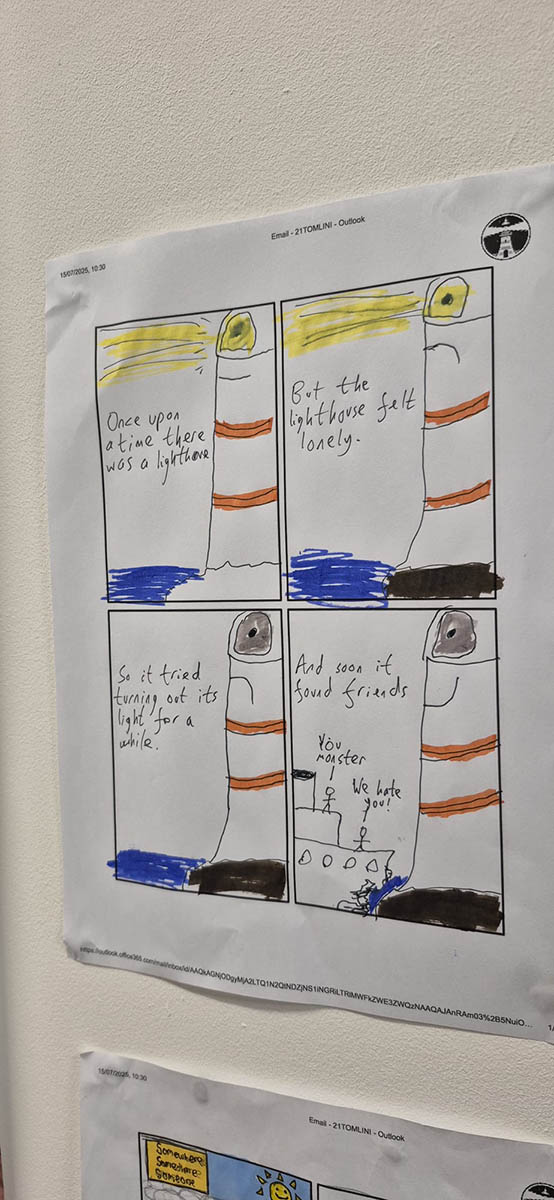 15/07/2025, 10:30
Email - 21TOMLINI - Outlook
Once upon
a time there
was a lighthouse
But the
lighthouse felt
lonely.
So it tried
turning out its
light for a
while.
And soon it
found friends
You
monster
We hate
you!
15/07/2025, 10:30
Email - 21TOMLINI - Outlook
Somewhere
Somewhere
Someone